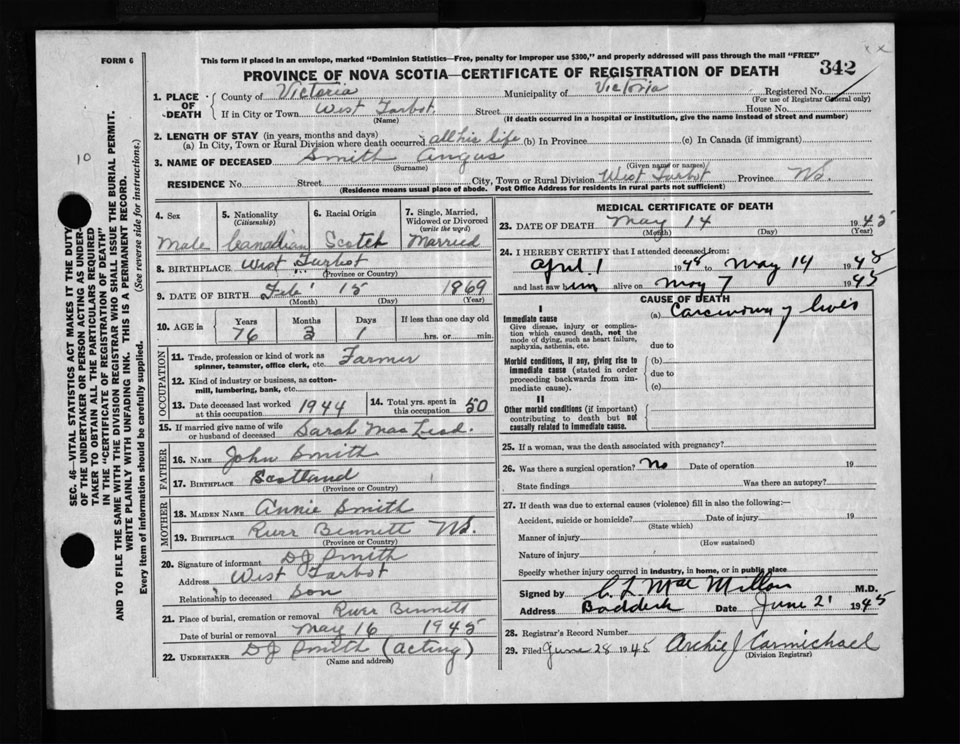 FORM 6
This form if placed in an envelope, marked "Dominion Statistics—Free, penalty for improper use $300," and properly addressed will pass through the mail "FREE"
PROVINCE OF NOVA SCOTIA—CERTIFICATE OF REGISTRATION OF DEATH
342
1. PLACE OF DEATH
County of Victoria Municipality of Victoria Registered No.
(For use of Registrar General only)
If in City or Town West Tarbot Street House No.
(Name) (If death occurred in a hospital or institution, give the name instead of street and number)
2. LENGTH OF STAY (in years, months and days)
(a) In City, Town or Rural Division where death occurred all his life (b) In Province (c) In Canada (if immigrant)
3. NAME OF DECEASED Smith Angus
(Surname) (Given name or names)
RESIDENCE No. Street City, Town or Rural Division West Tarbot Province NS.
(Residence means usual place of abode. Post Office Address for residents in rural parts not sufficient)
4. Sex
Male
5. Nationality
(Citizenship)
Canadian
6. Racial Origin
Scotch
7. Single, Married, Widowed or Divorced
(write the word)
Married
8. BIRTHPLACE West Tarbot
(Province or Country)
9. DATE OF BIRTH Feb 15 1869
(Month) (Day) (Year)
10. AGE in
Years Months Days If less than one day old
76 3 1 hrs. or min.
OCCUPATION
11. Trade, profession or kind of work as spinner, teamster, office clerk, etc. Farmer
12. Kind of industry or business, as cotton-mill, lumbering, bank, etc.
13. Date deceased last worked at this occupation 1944
14. Total yrs. spent in this occupation 50
15. If married give name of wife or husband of deceased Sarah MacLeod.
FATHER
16. NAME John Smith
17. BIRTHPLACE Scotland
(Province or Country)
MOTHER
18. MAIDEN NAME Annie Smith
19. BIRTHPLACE River Bennett NS.
(Province or Country)
20. Signature of informant DJ Smith
Address West Tarbot
Relationship to deceased Son
21. Place of burial, cremation or removal River Bennett
Date of burial or removal May 16 1945
22. UNDERTAKER DJ Smith (acting)
(Name and address)
MEDICAL CERTIFICATE OF DEATH
23. DATE OF DEATH May 14 1945
(Month) (Day) (Year)
24. I HEREBY CERTIFY that I attended deceased from:
April 1 1945 to May 14 1945
and last saw him alive on May 7 1945
CAUSE OF DEATH
I
Immediate cause
Give disease, injury or complication which caused death, not the mode of dying, such as heart failure, asphyxia, asthenia, etc.
(a) Carcinoma of liver
due to
Morbid conditions, if any, giving rise to immediate cause (stated in order proceeding backwards from immediate cause).
(b)
due to
(c)
II
Other morbid conditions (if important) contributing to death but not causally related to immediate cause.
25. If a woman, was the death associated with pregnancy?
26. Was there a surgical operation? No Date of operation 19
State findings Was there an autopsy?
27. If death was due to external causes (violence) fill in also the following:—
Accident, suicide or homicide? Date of injury 19
(State which)
Manner of injury
(How sustained)
Nature of injury
Specify whether injury occurred in industry, in home, or in public place
Signed by C L MacMillan M.D.
Address Baddeck Date June 21 1945
28. Registrar's Record Number
29. Filed June 28 1945 Archie J Carmichael
(Division Registrar)
10
SEC. 46—VITAL STATISTICS ACT MAKES IT THE DUTY
OF THE UNDERTAKER OR PERSON ACTING AS UNDER-
TAKER TO OBTAIN ALL THE PARTICULARS REQUIRED
IN THE "CERTIFICATE OF REGISTRATION OF DEATH"
AND TO FILE THE SAME WITH THE DIVISION REGISTRAR WHO SHALL ISSUE THE BURIAL PERMIT.
WRITE PLAINLY WITH UNFADING INK. THIS IS A PERMANENT RECORD.
Every item of information should be carefully supplied. (See reverse side for instructions.)